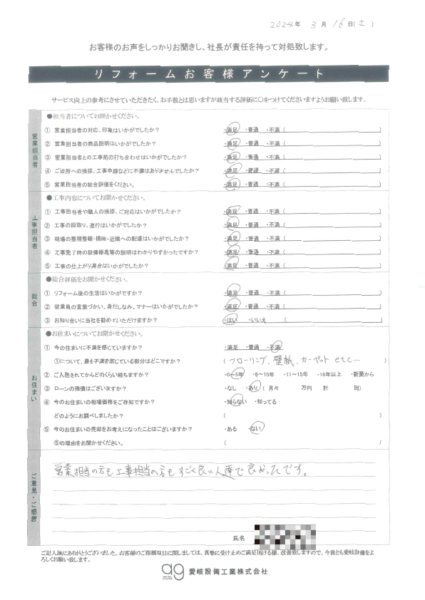 2024年 3月 16日(土)
お客様のお声をしっかりお聞きし、社長が責任を持って対処致します。
リフォームお客様アンケート
サービス向上の参考にさせていただきたく、お手数とは思いますが該当する評価に○をつけてくださいますようお願い致します。
営業担当者
●担当者についてお聞かせください。
① 営業担当者の対応、印象はいかがでしたか? ・満足 ・普通 ・不満 ( )
② 営業担当者の商品説明はいかがでしたか? ・満足 ・普通 ・不満 ( )
③ 営業担当者との工事前の打ち合わせはいかがでしたか? ・満足 ・普通 ・不満 ( )
④ ご近所への挨拶、工事手配などに不備はありませんでしたか? ・満足 ・普通 ・不満 ( )
⑤ 営業担当者の総合評価をください。 ・満足 ・普通 ・不満 ( )
工事担当者
●工事内容についてお聞かせください。
① 工事担当者や職人の挨拶、ご対応はいかがでしたか? ・満足 ・普通 ・不満 ( )
② 工事の段取り、進行はいかがでしたか? ・満足 ・普通 ・不満 ( )
③ 現場の整理整頓・掃除・近隣への配慮はいかがでしたか? ・満足 ・普通 ・不満 ( )
④ 工事完了時の設備機器等の説明はわかりやすかったですか? ・満足 ・普通 ・不満 ( )
⑤ 工事の仕上がり具合はいかがでしたか? ・満足 ・普通 ・不満 ( )
総合
●総合評価をお聞かせください。
① リフォーム後の生活はいかがですか? ・満足 ・普通 ・不満 ( )
② 従業員の言葉づかい、身だしなみ、マナーはいかがでしたか? ・満足 ・普通 ・不満 ( )
③ お知り合いに当社を勧めていただけますか? ・はい ・いいえ
お住まい
●お住まいについてお聞かせください。
① 今の住まいに不満を感じていますか? ・満足 ・普通 ・不満
①について、最も不満を感じている部分はどこですか? ( フローリング、壁紙、カーペット )
② ご入居されてからどのくらい経ちますか? ・0~5年 ・6~10年 ・11~15年 ・16年以上 ・新築から
③ ローンの残債はございますか? ・なし ・あり ( 月々 万円 計 )
④ 今のお住まいの相場価格をご存知ですか? ・知らない ・知ってる
どのようにお調べしましたか? ( )
⑤ 今のお住まいの売却をお考えになったことはございますか? ・ある ・ない
⑤の理由をお聞かせください。 ( )
ご意見・ご感想
営業担当の方も工事担当の方もすごく良い人達で良かったです。
氏名
ご記入誠にありがとうございました。
ag 愛岐設備工業株式会社